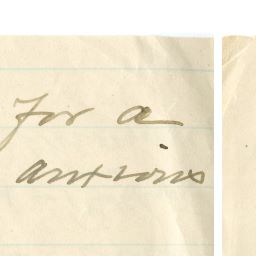 for a
anxious